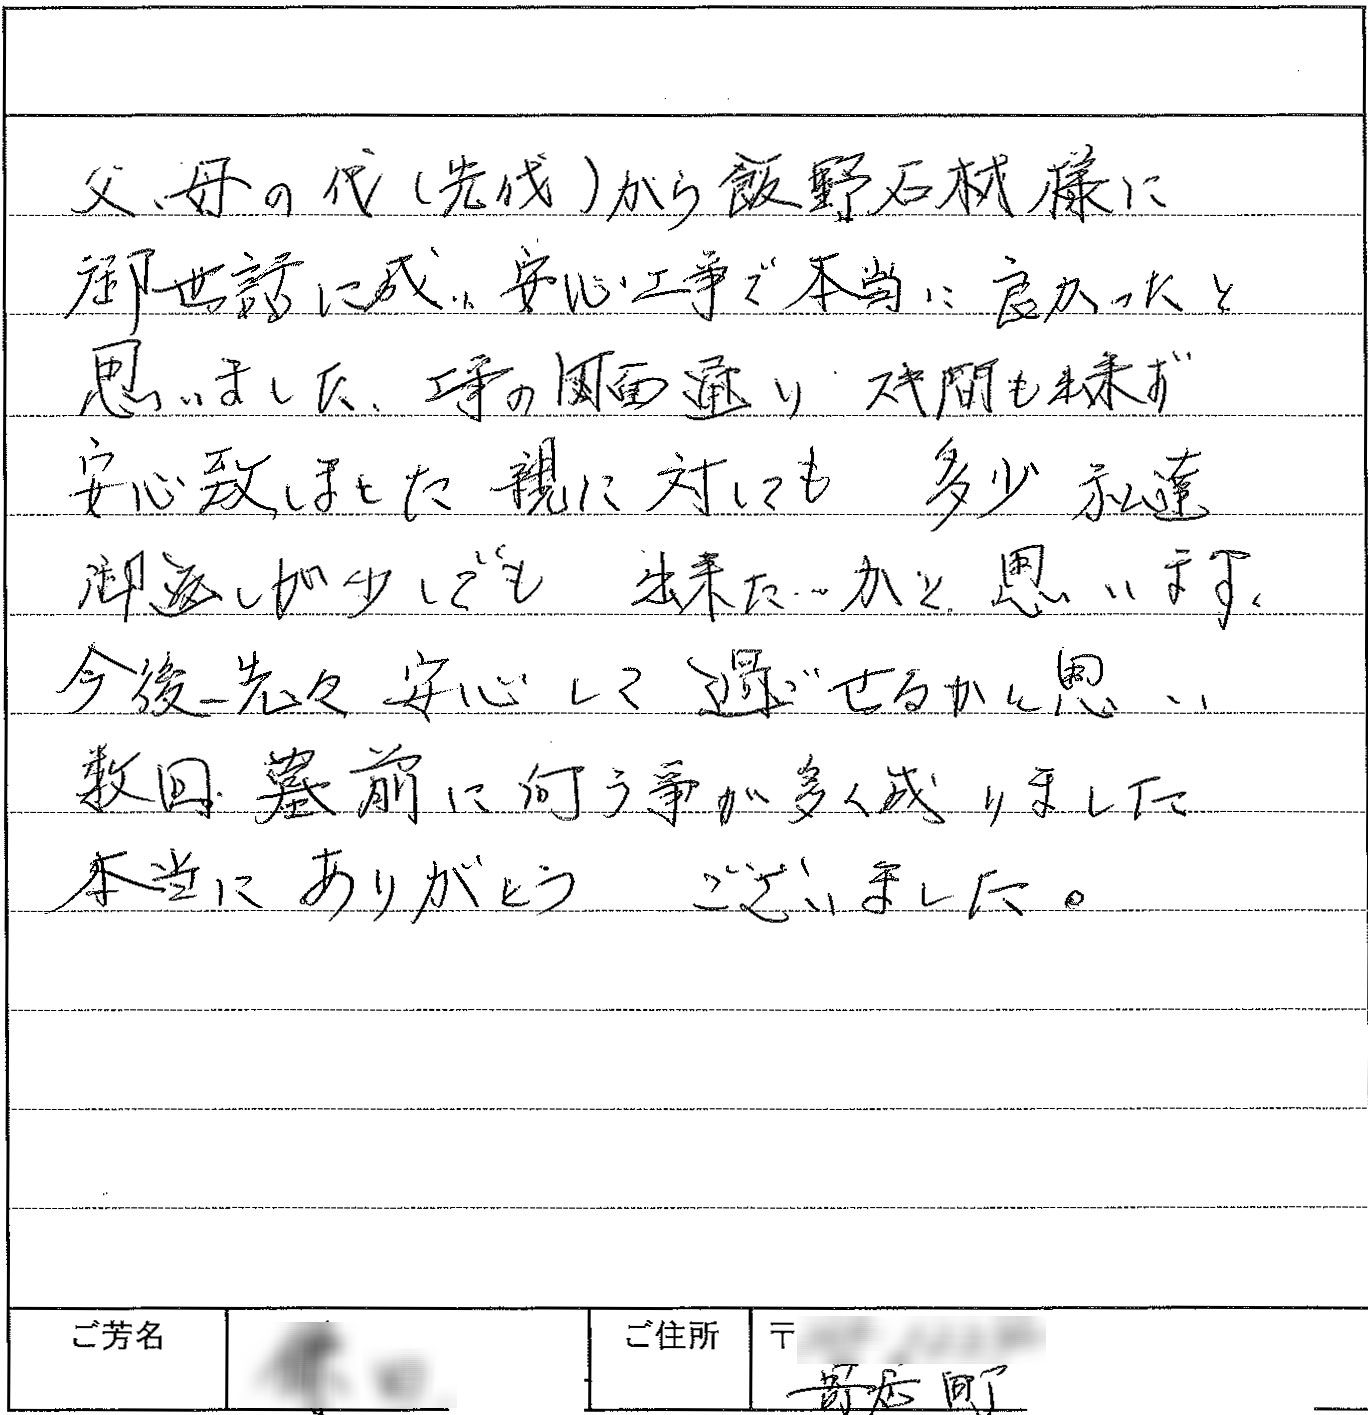 父、母の代(先代)から飯野石材様に
御世話に成い安心工事で本当に良かったと
思いました、工事の図面通り 隙間も出来ず
安心致しました 親に対しても 多少 私達
御返しが少しでも 出来たいかと思います、
今後先々安心して過ごせるかと思い
数回 墓前に伺う事が多く成りました
本当に ありがとう ございました。
ご芳名
ご住所 〒
寄居町